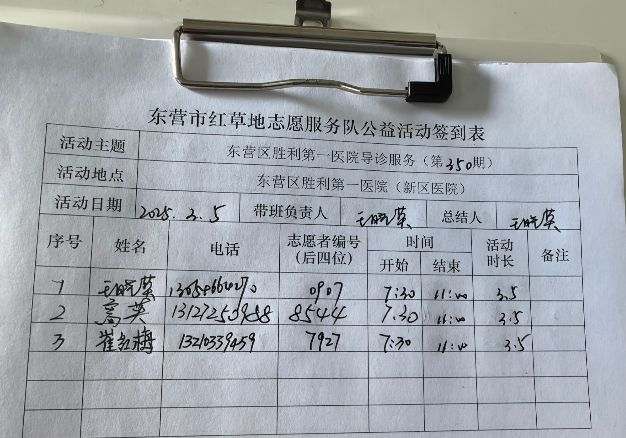 东营市红草地志愿服务队公益活动签到表
活动主题 东营区胜利第一医院导诊服务（第350期）
活动地点 东营区胜利第一医院（新区医院）
活动日期 2025.3.5 带班负责人 王晓英 总结人 王晓英
序号 姓名 电话 志愿者编号（后四位） 时间 开始 结束 活动时长 备注
1 王晓英 0907 7:30 11:00 3.5
2 高英 8544 7:30 11:00 3.5
3 崔红梅 13210339459 7927 7:30 11:00 3.5